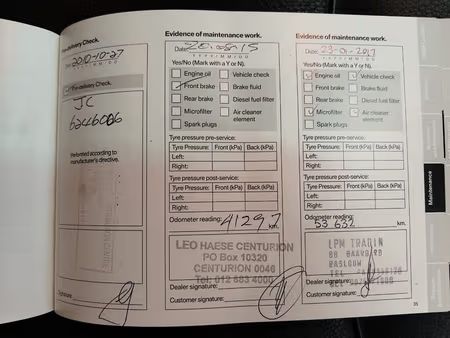 Pre-delivery Check.
Date: 2010-10-27
YYYY/MM/DD
Pre-delivery Check.
JC
Performed according to
manufacturer's directive.
Signature:
Evidence of maintenance work.
Date:
YYYY/MM/DD
Yes/No (Mark with a Y or N).
Engine oil
Vehicle check
Front brake
Brake fluid
Rear brake
Diesel fuel filter
Microfilter
Air cleaner
element
Spark plugs
Tyre pressure pre-service:
Tyre Pressure: Front (kPa) Back (kPa)
Left:
Right:
Tyre pressure post-service:
Tyre Pressure: Front (kPa) Back (kPa)
Left:
Right:
Odometer reading: 41297 km.
LEO HAESE CENTURION
PO Box 10320
CENTURION 0046
Tel: 012 683 4000
Dealer signature:
Customer signature:
Evidence of maintenance work.
Date:
YYYY/MM/DD
Yes/No (Mark with a Y or N).
Engine oil
Vehicle check
Front brake
Brake fluid
Rear brake
Diesel fuel filter
Microfilter
Air cleaner
element
Spark plugs
Tyre pressure pre-service:
Tyre Pressure: Front (kPa) Back (kPa)
Left:
Right:
Tyre pressure post-service:
Tyre Pressure: Front (kPa) Back (kPa)
Left:
Right:
Odometer reading:
53 632 km.
LPM TRADIN
Dealer signature:
Customer signature:
35
Maintenance